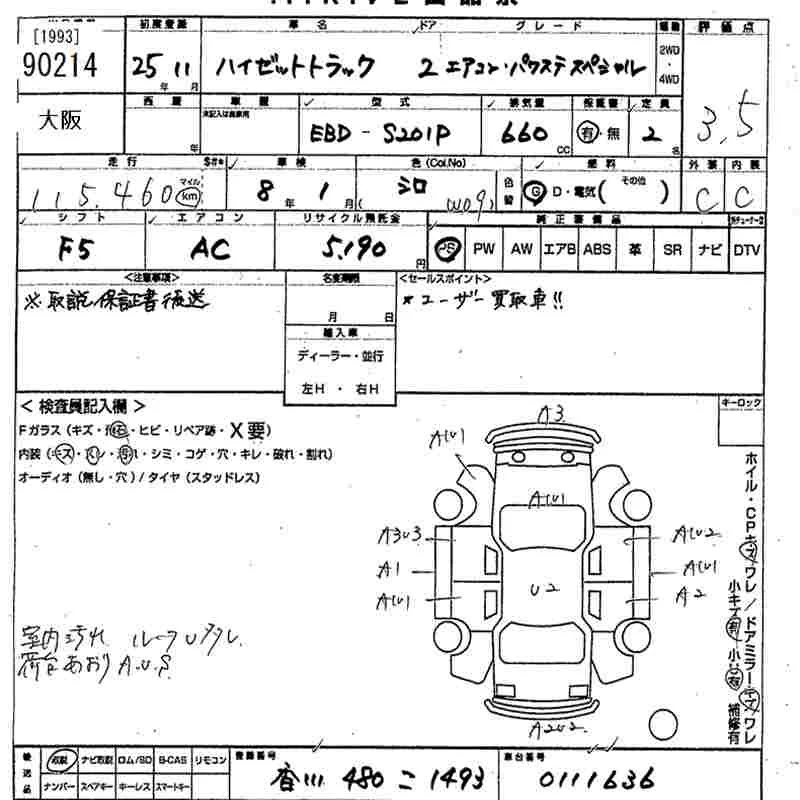 [1993]
90214
初度登録 車名 ドア グレード 評価点
25 11 ハイゼットトラック 2 エアコン・パワステスペシャル 2WD・4WD
年 月
大阪 車歴 型式 排気量 保証書 定員
未記入は自家用
EBD - S201P 660 cc 有・無 2 名 3.5
年
走行 車検 色(Col.No) 燃料 外装 内装
115,460 マイル km 8年 1月 シロ (W09) 色替 G D・電気( その他 ) C C
シフト エアコン リサイクル預託金 純正装備品
F5 AC 5,190 円 PS PW AW エアB ABS 革 SR ナビ DTV
<注意事項> 名変期限 <セールスポイント>
※取説、保証書後送 月 日 *ユーザー買取車!!
輸入車
ディーラー・並行
左H ・ 右H
キーロック
<検査員記入欄>
Fガラス (キズ・飛石・ヒビ・リペア跡・X要)
内装 (キズ・・汚れ・シミ・コゲ・穴・キレ・破れ・割れ)
オーディオ (無し・穴) / タイヤ (スタッドレス)
A3
A(U)1
A(U)1
A3U3 A(U)2
A1 A(U)1
A(U)1 U2 A2
A2U2
ホイル・CPキズワレ/ドアミラーキズワレ
小キズ有 小U有 補修有
室内汚れ
荷台あおりA.U.S
後送品 取説 ナビ取説 ロム/SD B-CAS リモコン
ナンバー スペアキー キーレス スマートキー
登録番号 車台番号
香川 480 こ 1493 0111636